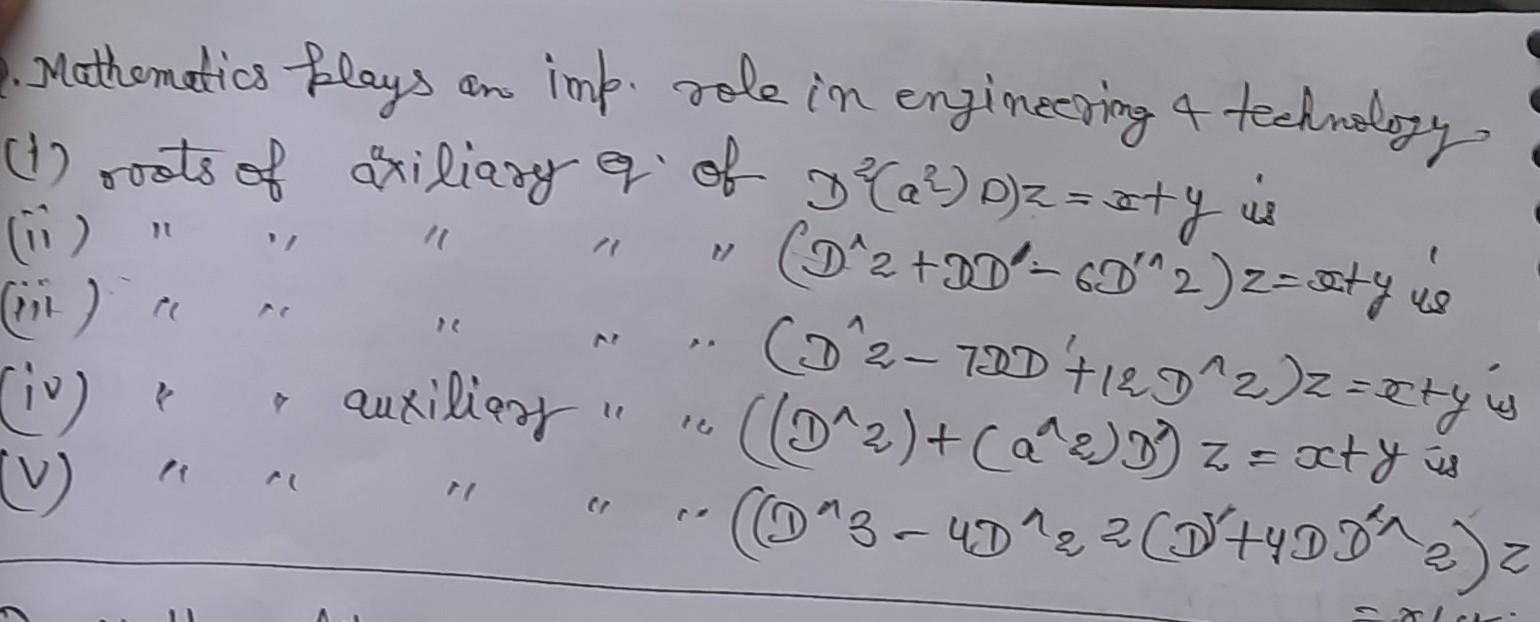 . Mathematics plays an imp. role in engineering & technology.
(i) roots of axiliary eq. of D²(a²) D)z = x+y is
(ii) " " " " " (D^2 + DD' - 6D'^2)z = x+y is
(iii) " " " " " (D^2 - 7DD' + 12D^2)z = x+y is
(iv) " " auxiliary " " ((D^2) + (a^2)D') z = x+y is
(v) " " " " " ((D^3 - 4D^2 2(D' + 4DD'^2)z